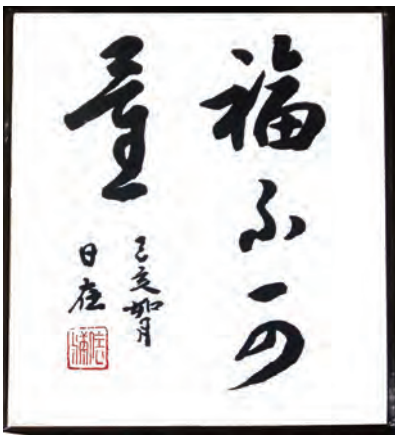 福不可
量
己亥如月
日